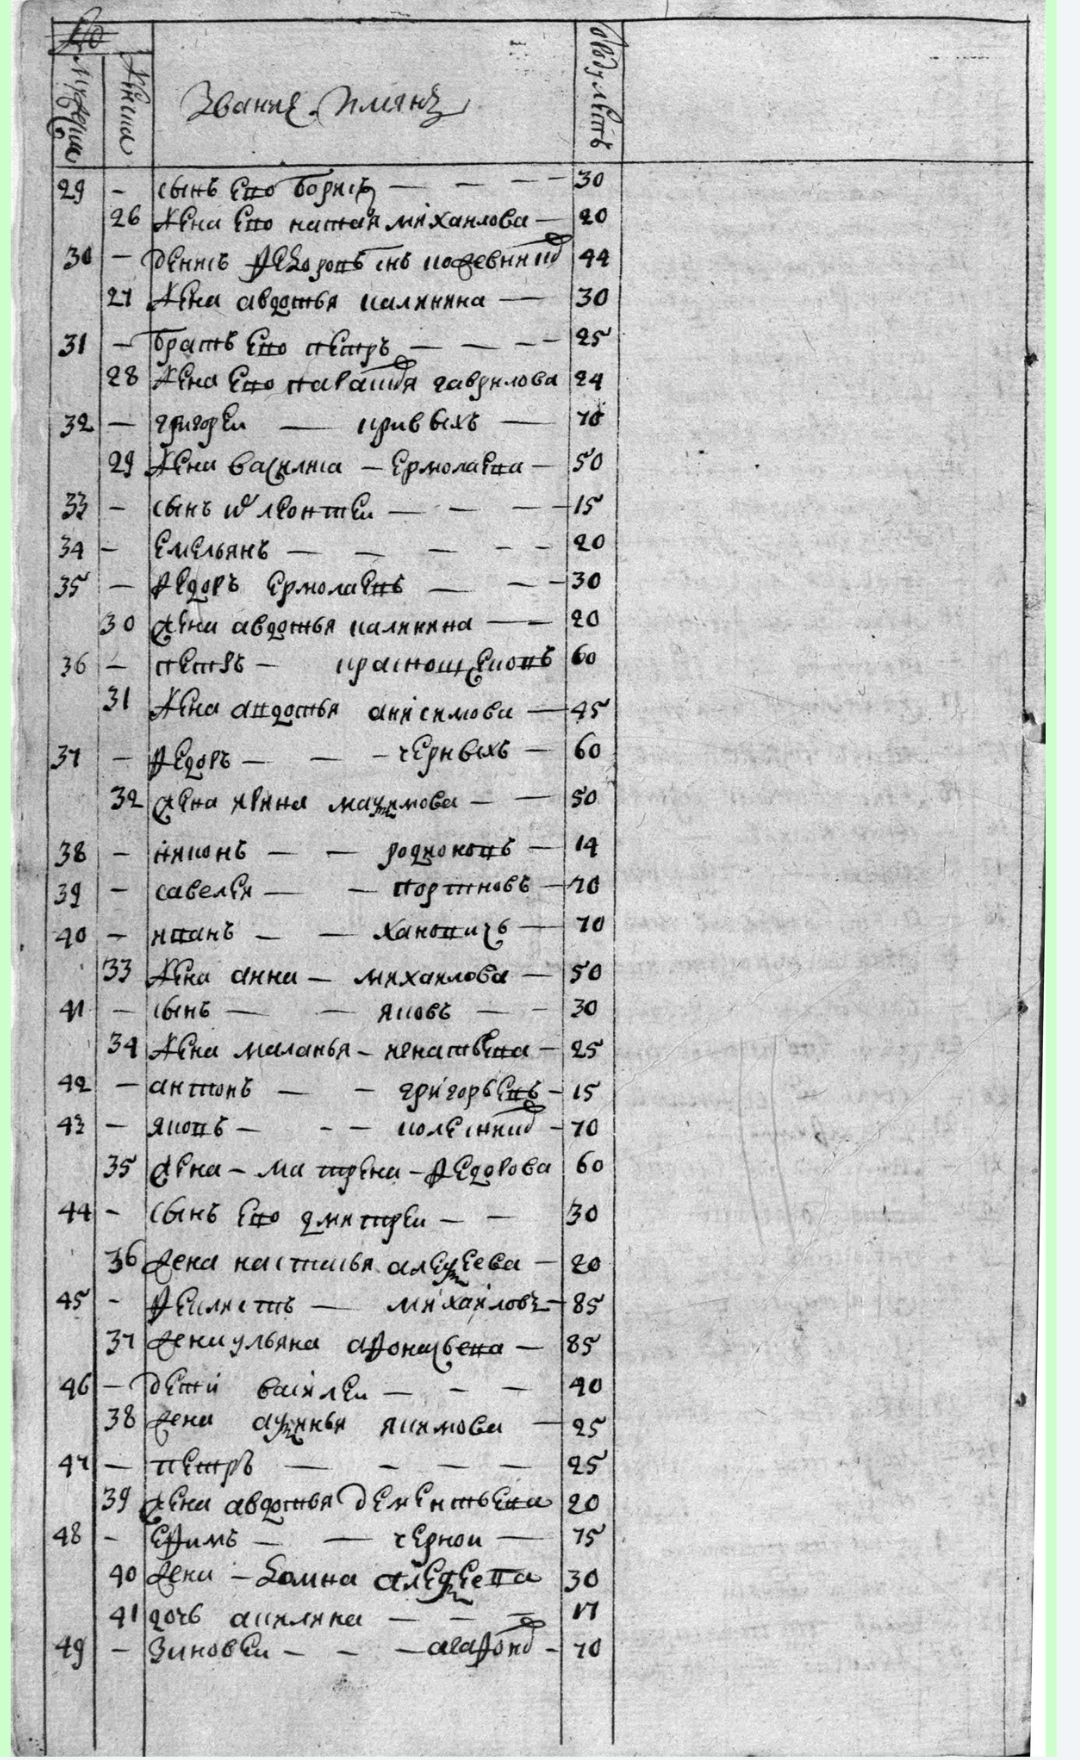 мужеска
женска
Звание имянъ
30
29 - сынъ ево борисъ - - - 30
26 жена ево настая михаилова - 20
30 - денисъ федоровъ снъ 44
27 жена авдотья калинина - 30
31 - братъ ево петръ - - - - 25
28 жена ево парасия гаврилова 24
32 - григореи - кривыхъ - 70
29 жена василиса - ермолаева - 50
33 - сынъ леонтеи - - - 15
34 - емельянъ - - - - - 20
35 - федоръ ермолаевъ - - - 30
30 жена авдотья калинина - - 20
36 - петръ - краснощековъ 60
31 жена авдотья анисимова - 45
37 - федоръ - - - черныхъ - 60
32 жена ирина маѯимова - - 50
38 - никонъ - - родионовъ - 14
39 - савелеи - - портновъ - 70
40 - иванъ - - 70
33 жена анна - михаилова - 50
41 - сынъ - - яковъ - - 30
34 жена маланья - игнатьева - 25
42 - антонъ - - григорьевъ - 15
43 - яковъ - - - колесников - 70
35 жена - матрена - федорова 60
44 - сынъ ево дмитреи - - 30
36 жена настасья алеѯеева - 20
45 - феклистъ - михаиловъ - 85
37 жена ульяна афонасьева - 85
46 - дети василеи - - - 40
38 жена аѯинья якимова - 25
47 - петръ - - - - 25
39 жена авдотья дементьева 20
48 - ефимъ - - чернои - 75
40 жена - домна алеѯеева 30
41 дочь акилина - - - 17
49 - зиновеи - - - агафонов - 70